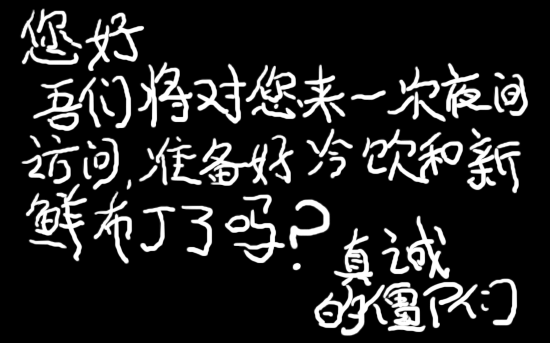 您好
吾们将对您来一次夜间
访问,准备好冷饮和新
鲜布丁了吗?
真诚
的僵尸们